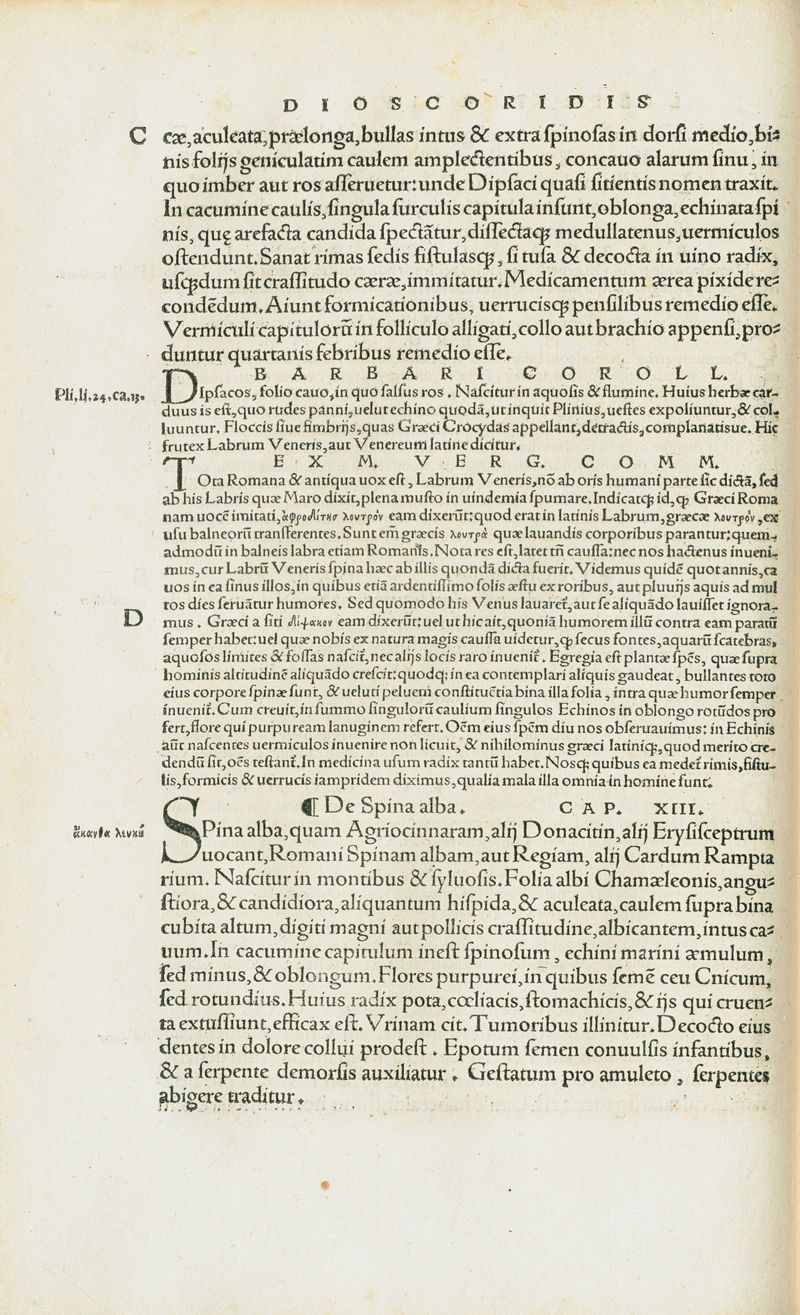 DIOSCORIDIS
C cæ, aculeata, prælonga, bullas intus & extra spinosas in dorsi medio, bi⸗
nis folijs geniculatim caulem amplectentibus, concauo alarum sinu, in
quo imber aut ros asseruetur: unde Dipsaci quasi sitientis nomen traxit.
In cacumine caulis, singula surculis capitula insunt, oblonga, echinata spi
nis, quę arefacta candida spectãtur, dissectaq́ medullatenus, uermiculos
ostendunt. Sanat rimas sedis fistulasq́, si tusa & decocta in uino radix,
usq́dum sit crassitudo cæræ, immitatur. Medicamentum ærea pixide re⸗
condẽdum. Aiunt formicationibus, uerrucisq́ pensilibus remedio esse.
Vermiculi capitulorũ in folliculo alligati, collo aut brachio appensi, pro⸗
duntur quartanis febribus remedio esse.
BARBARI COROLL.
Pli. lj. 24. ca. 13.
DIpsacos, folio cauo, in quo falsus ros. Nascitur in aquosis & flumine. Huius herbæ car⸗
duus is est, quo rudes panni, uelut echino quodã, ut inquit Plinius, uestes expoliuntur, & col⸗
luuntur. Floccis siue fimbrijs, quas Græci Crocydas appellant, detractis, complanatisue. Hic
frutex Labrum Veneris, aut Venereum latine dicitur.
EX M. VERG. COMM.
TOta Romana & antiqua uox est, Labrum Veneris, nõ ab oris humani parte sic dictã, sed
ab his Labris quæ Maro dixit, plena musto in uindemia spumare. Indicatq́ id, q̃ Græci Roma
nam uocẽ imitati, ἀφροδίτησ λουτρὸν eam dixerũt: quod erat in latinis Labrum, græcæ λουτρὸν, ex
usu balneorũ transferentes. Sunt em̃ græcis λουτρὰ quæ lauandis corporibus parantur: quem⸗
admodũ in balneis labra etiam Romanis. Nota res est, latet tñ caussa: nec nos hactenus inueni⸗
mus, cur Labrũ Veneris spina hæc ab illis quondã dicta fuerit. Videmus quidẽ quotannis, ca
uos in ea sinus illos, in quibus etiã ardentissimo solis æstu ex roribus, aut pluuijs aquis ad mul
tos dies seruãtur humores. Sed quomodo his Venus lauaret̃, aut se aliquãdo lauisset ignora⸗
D mus. Græci a siti δίψακον eam dixerũt: uel ut hic ait, quoniã humorem illũ contra eam paratũ
semper habet: uel quæ nobis ex natura magis caussa uidetur, q̃ secus fontes, aquarũ scatebras,
aquosos limites & fossas nascit̃, nec alijs locis raro inuenit̃. Egregia est plantæ spẽs, quæ supra
hominis altitudinẽ aliquãdo crescit: quodq; in ea contemplari aliquis gaudeat, bullantes toto
eius corpore spinæ sunt, & ueluti peluem constituẽtia bina illa folia, intra quæ humor semper
inuenit̃. Cum creuit, in summo singulorũ caulium singulos Echinos in oblongo rotũdos pro
fert, flore qui purpuream lanuginem refert. Oẽm eius spẽm diu nos obseruauimus: in Echinis
aũt nascentes uermiculos inuenire non licuit, & nihilominus græci latiniq́, quod merito cre⸗
dendũ sit, oẽs testant̃. In medicina usum radix tantũ habet. Nosq́ quibus ea medet̃ rimis, fistu⸗
lis, formicis & uerrucis iampridem diximus, qualia mala illa omnia in homine sunt.
¶ De Spina alba. CAP. XIII.
ἄκανθα λευκὴ
SPina alba, quam Agriocinnaram, alij Donacitin, alij Erysisceptrum
uocant, Romani Spinam albam, aut Regiam, alij Cardum Rampta
rium. Nascitur in montibus & syluosis. Folia albi Chamæleonis, angu⸗
stiora, & candidiora, aliquantum hispida, & aculeata, caulem supra bina
cubita altum, digiti magni aut pollicis crassitudine, albicantem, intus ca⸗
uum. In cacumine capitulum inest spinosum, echini marini æmulum,
sed minus, & oblongum. Flores purpurei, in quibus semẽ ceu Cnicum,
sed rotundius. Huius radix pota, cœliacis, stomachicis, & ijs qui cruen⸗
ta extussiunt, efficax est. Vrinam cit. Tumoribus illinitur. Decocto eius
dentes in dolore collui prodest. Epotum semen conuulsis infantibus,
& a serpente demorsis auxiliatur. Gestatum pro amuleto, serpentes
abigere traditur.